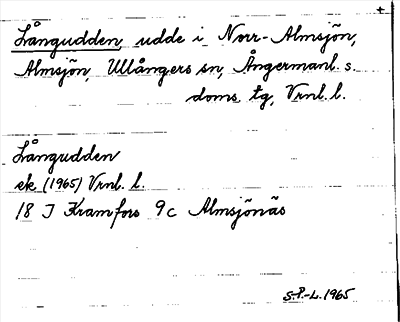 Långudden, udde i Norr-Almsjön,
Almsjön, Ullångers sn, Ångermanl. s.
doms. tg, Vrnl. l.
Långudden
ek (1965) Vrnl. l.
18 J Kramfors 9c Almsjönäs
S.P.-L. 1965